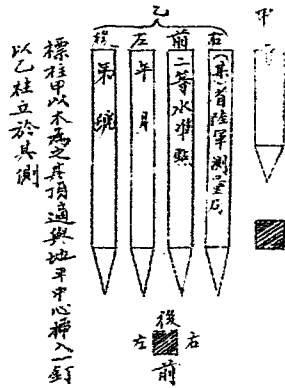 甲
乙
右 前 左 後
(某)省陸軍測量局
二等水準點
年 月
第 號
後
左 右
前
標柱甲以木為之其頂適與地平中心榫入一釘
以乙柱立於其側